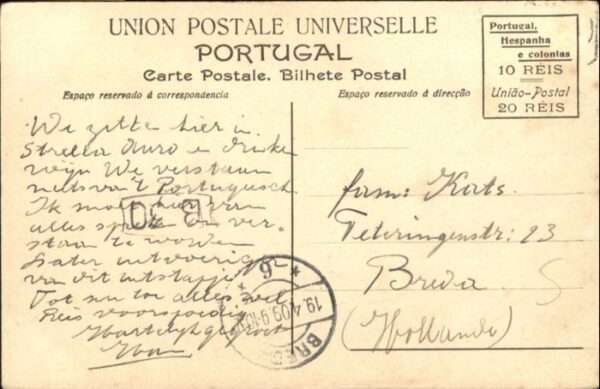 UNION POSTALE UNIVERSELLE
PORTUGAL
Carte Postale. Bilhete Postal
Portugal,
Hespanha
e colonias
10 RÉIS
União-Postal
20 RÉIS
Espaço reservado á correspondencia
Espaço reservado á direcção
We zitten hier in
Strella d'uro e drinken
wijn We verstaan
niets van 't Portugeesch
Ik moet hier van
alles spreken om ver-
staan te worden
Later uitvoeriger
van dit uitstapje
Tot nu toe alles wel
Reis voorspoedig
Hartelijk gegroet
fam: Kats.
Teteringenstr: 23
Breda.
(Hollande)
BREDA
19.4.09.9-10
6